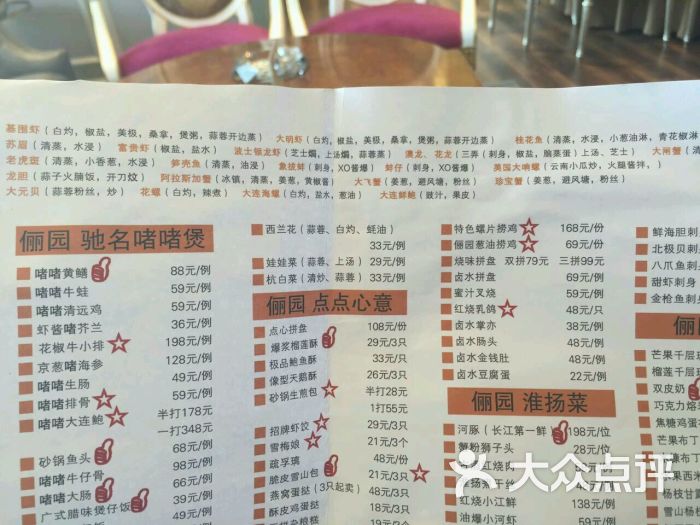 基围虾（白灼，椒盐，美极，桑拿，煲粥，蒜蓉开边蒸） 大明虾（白灼，椒盐，美极，桑拿，煲粥，蒜蓉开边蒸） 桂花鱼（清蒸，水浸，小葱油淋，青花椒淋
苏眉（清蒸，水浸） 富贵虾（椒盐，盐水） 波士顿龙虾（芝士焗，上汤焗，蒜蓉蒸） 澳龙、花龙（三弄（刺身，椒盐，脑蒸蛋）上汤、芝士） 大闸蟹（清
老虎斑（清蒸，小香葱，水浸） 笋壳鱼（清蒸，油浸） 象拔蚌（刺身，XO酱爆） 蚌仔（刺身，XO酱爆） 美国大响螺（云南小瓜炒，火腿蒸拌，）
龙胆（蒜子火腩饭，开刀炆） 阿拉斯加蟹（冰镇，清蒸，姜葱，黄椒酱） 大飞蟹（姜葱，避风塘，粉丝） 珍宝蟹（姜葱，避风塘，粉丝）
大元贝（蒜蓉粉丝，炒） 花螺（白灼，辣煮） 大连海螺（白灼，盐水，葱油） 大连鲜鲍（豉汁，果皮）
俪园 驰名啫啫煲
啫啫黄鳝 88元/例
啫啫牛蛙 59元/例
啫啫清远鸡 59元/例
虾酱啫芥兰 36元/例
花椒牛小排 198元/例
京葱啫海参 128元/例
啫啫生肠 49元/例
啫啫排骨 59元/例
啫啫大连鲍 半打178元
一打348元
砂锅鱼头 68元/例
啫啫牛仔骨 66元/例
啫啫大肠 39元/例
广式腊味煲仔饭 49元/例
西兰花（蒜蓉、白灼、蚝油）
33元/例
娃娃菜（蒜蓉、上汤） 29元/例
杭白菜（清炒、蒜蓉） 33元/例
俪园 点点心意
点心拼盘 108元/份
爆浆榴莲酥 29元/3只
极品鲍鱼酥 33元/只
像型天鹅酥 26元/例
砂锅生煎包 半打28元
1打55元
招牌虾饺 29元/3只
雪梅娘 21元/3个
疏孚璃 48元/份
脆皮雪山包 21元/3只
燕窝蛋挞（3只起卖） 48元/3只
酥皮鸡蛋挞
特色螺片捞鸡 168元/份
俪园葱油捞鸡 69元/份
烧味拼盘 双拼79元 三拼99元
卤水拼盘 59元/例
蜜汁叉烧 59元/例
红烧乳鸽 48元/只
卤水掌亦 38元/例
卤水肠头 48元/例
卤水金钱肚 58元/例
卤水豆腐蛋 22元/例
俪园 淮扬菜
河豚（长江第一鲜） 198元/位
蟹粉狮子头 28元/位
红烧河鳗
油爆小河虾
鲜海胆刺
北极贝刺
八爪鱼刺
甜虾刺身
金枪鱼刺
俪
芒果千层
榴莲千层
双皮奶
巧克力熔
焦糖鸡蛋
芒果布丁
杨枝甘
大众点评